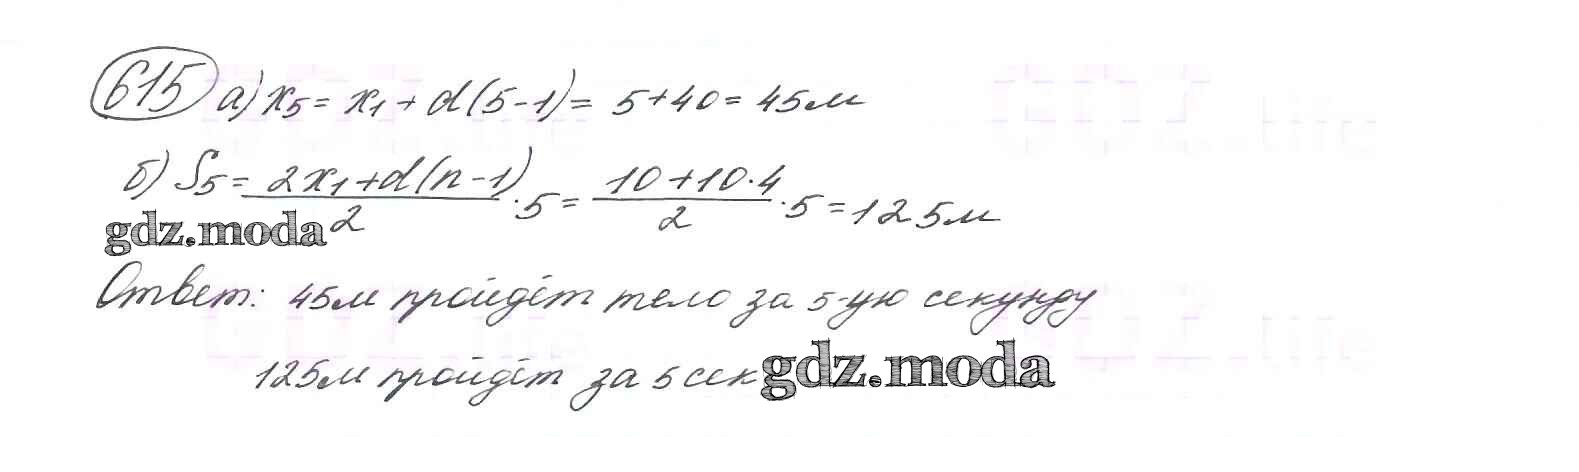 615 а) x₅ = x₁ + d(5-1) = 5+40 = 45м
б) S₅ = (2x₁+d(n-1))/2 · 5 = (10+10·4)/2 · 5 = 125м
gdz.moda
Ответ: 45м пройдёт тело за 5-ую секунду
125м пройдёт за 5 сек gdz.moda